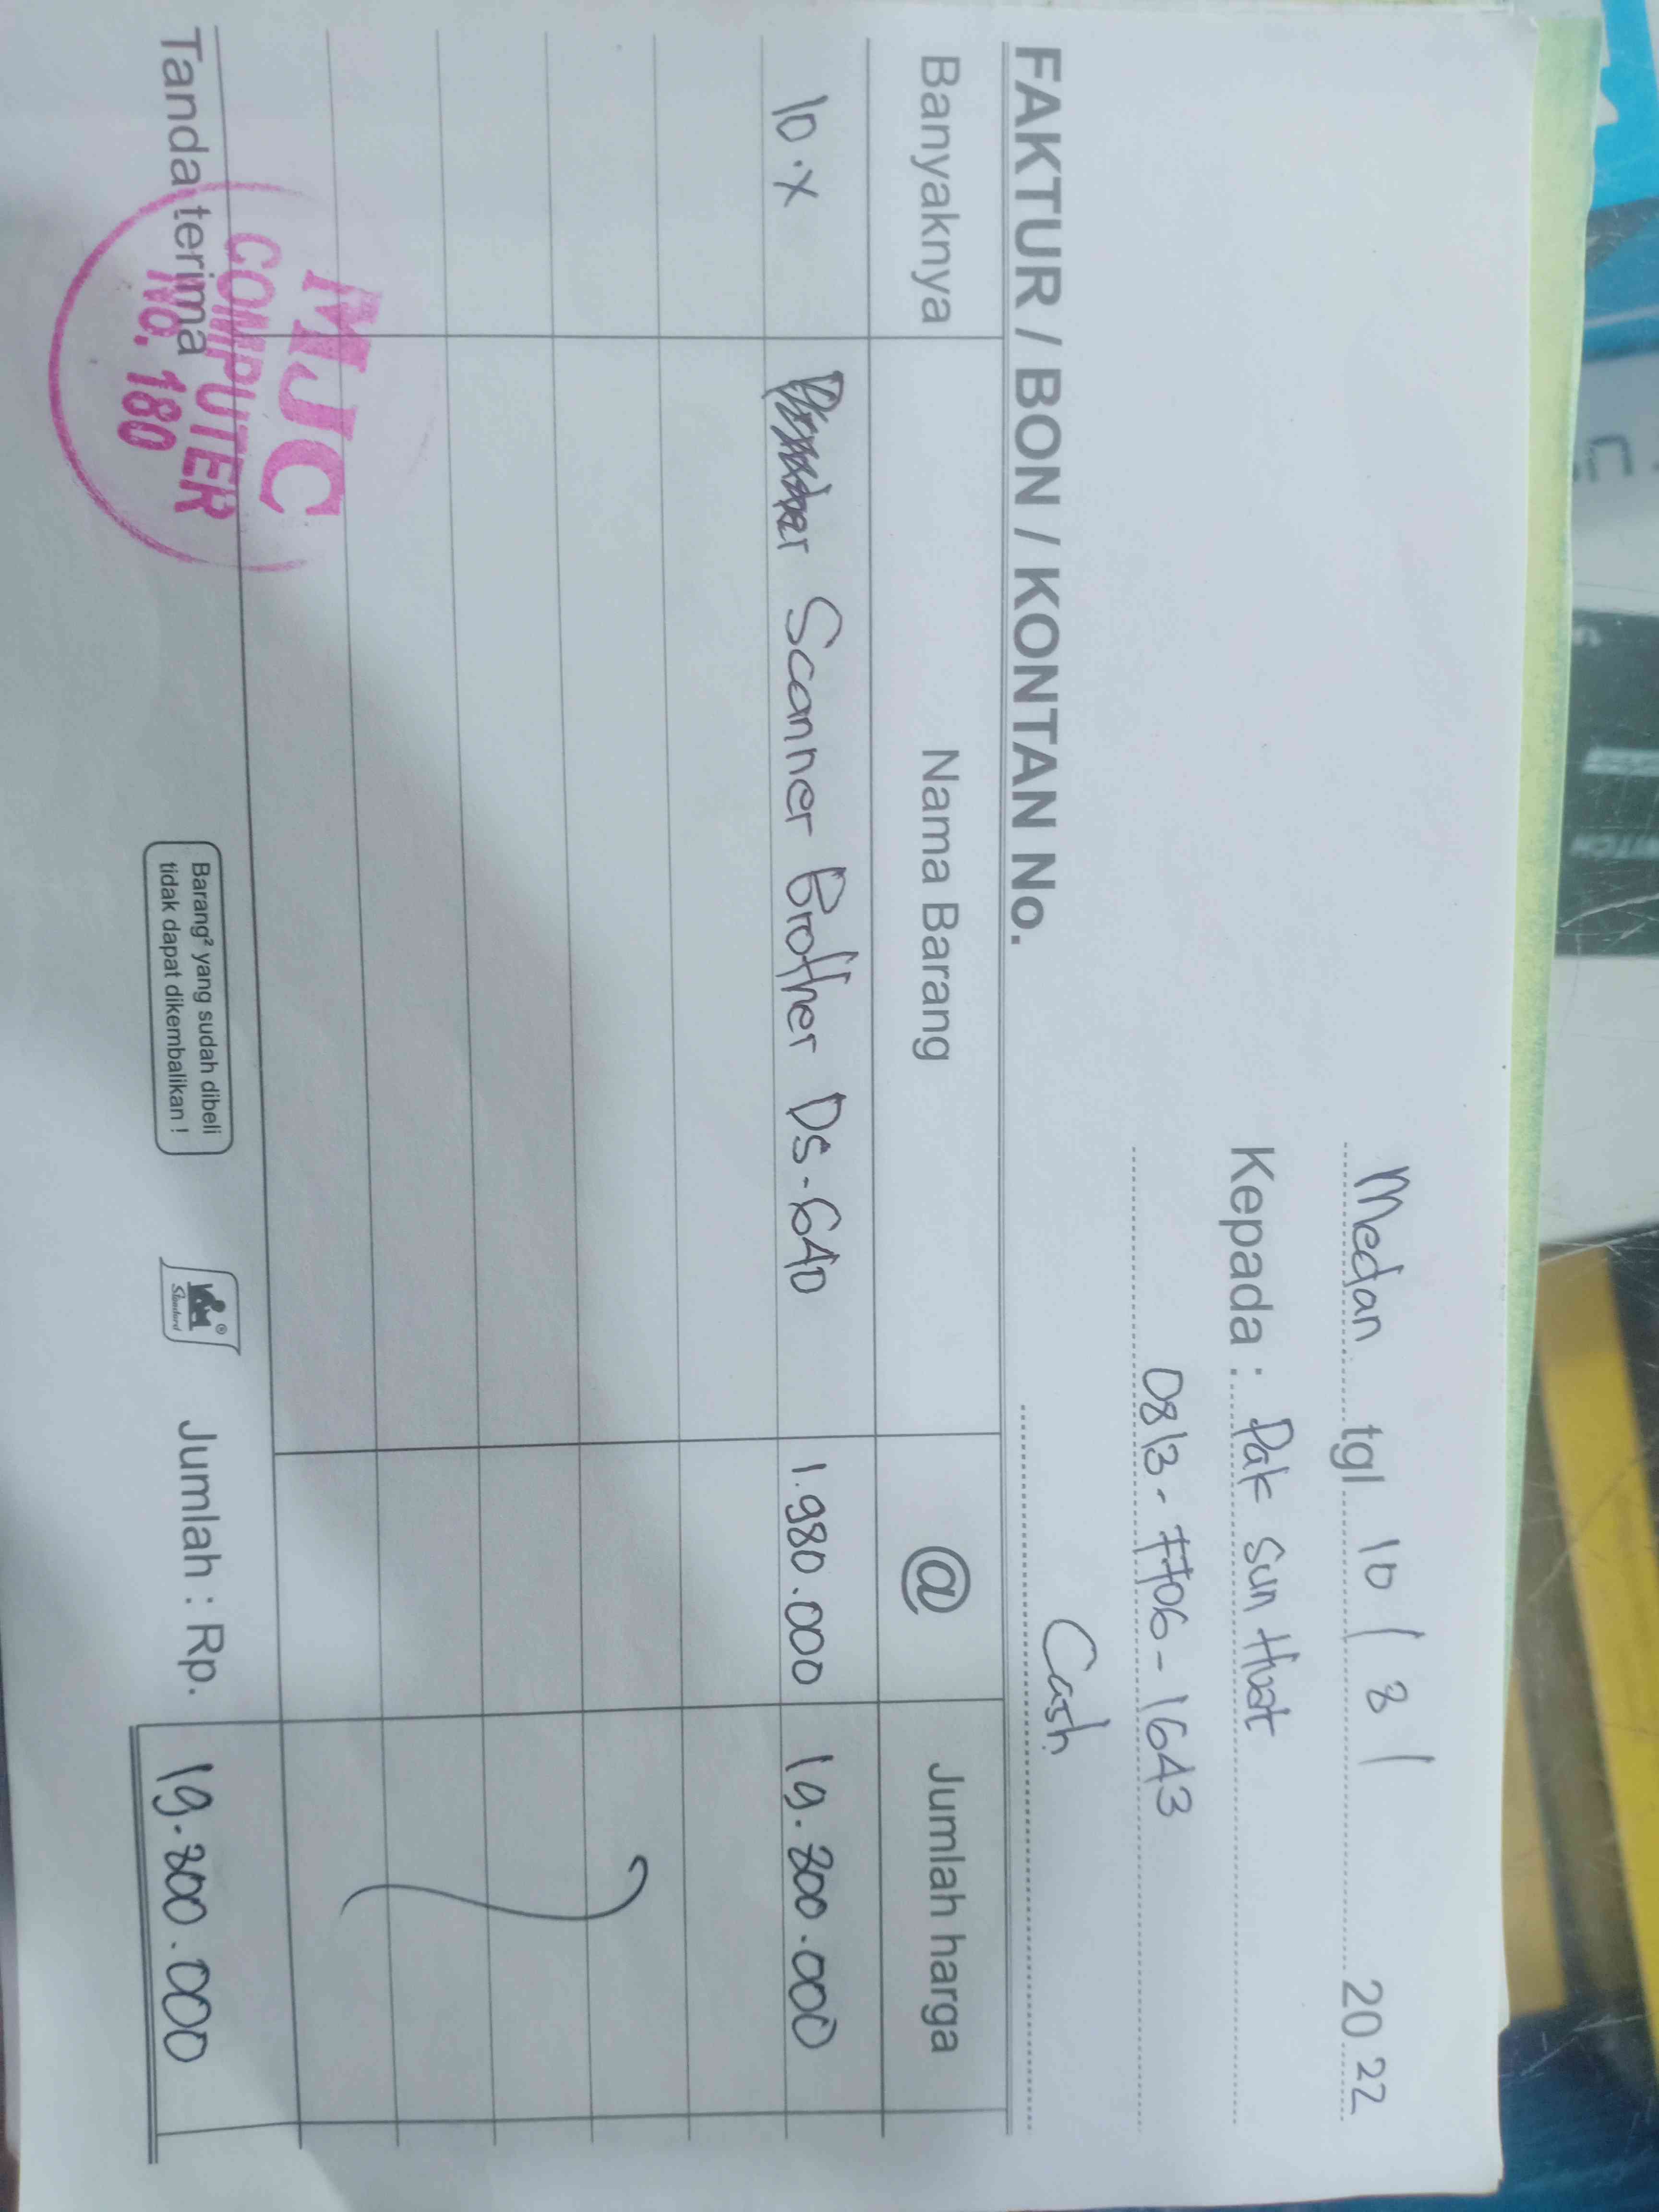 Medan tgl 10 / 8 / 20 22
Kepada : Pak Sun Huat
0813-7706-1643
FAKTUR / BON / KONTAN No. Cash
Banyaknya Nama Barang @ Jumlah harga
10.X Scanner Brother DS-640 1.980.000 19.800.000
Tanda terima
MJC
COMPUTER
No. 180
Barang² yang sudah dibeli
tidak dapat dikembalikan !
Standard
Jumlah : Rp. 19.800.000